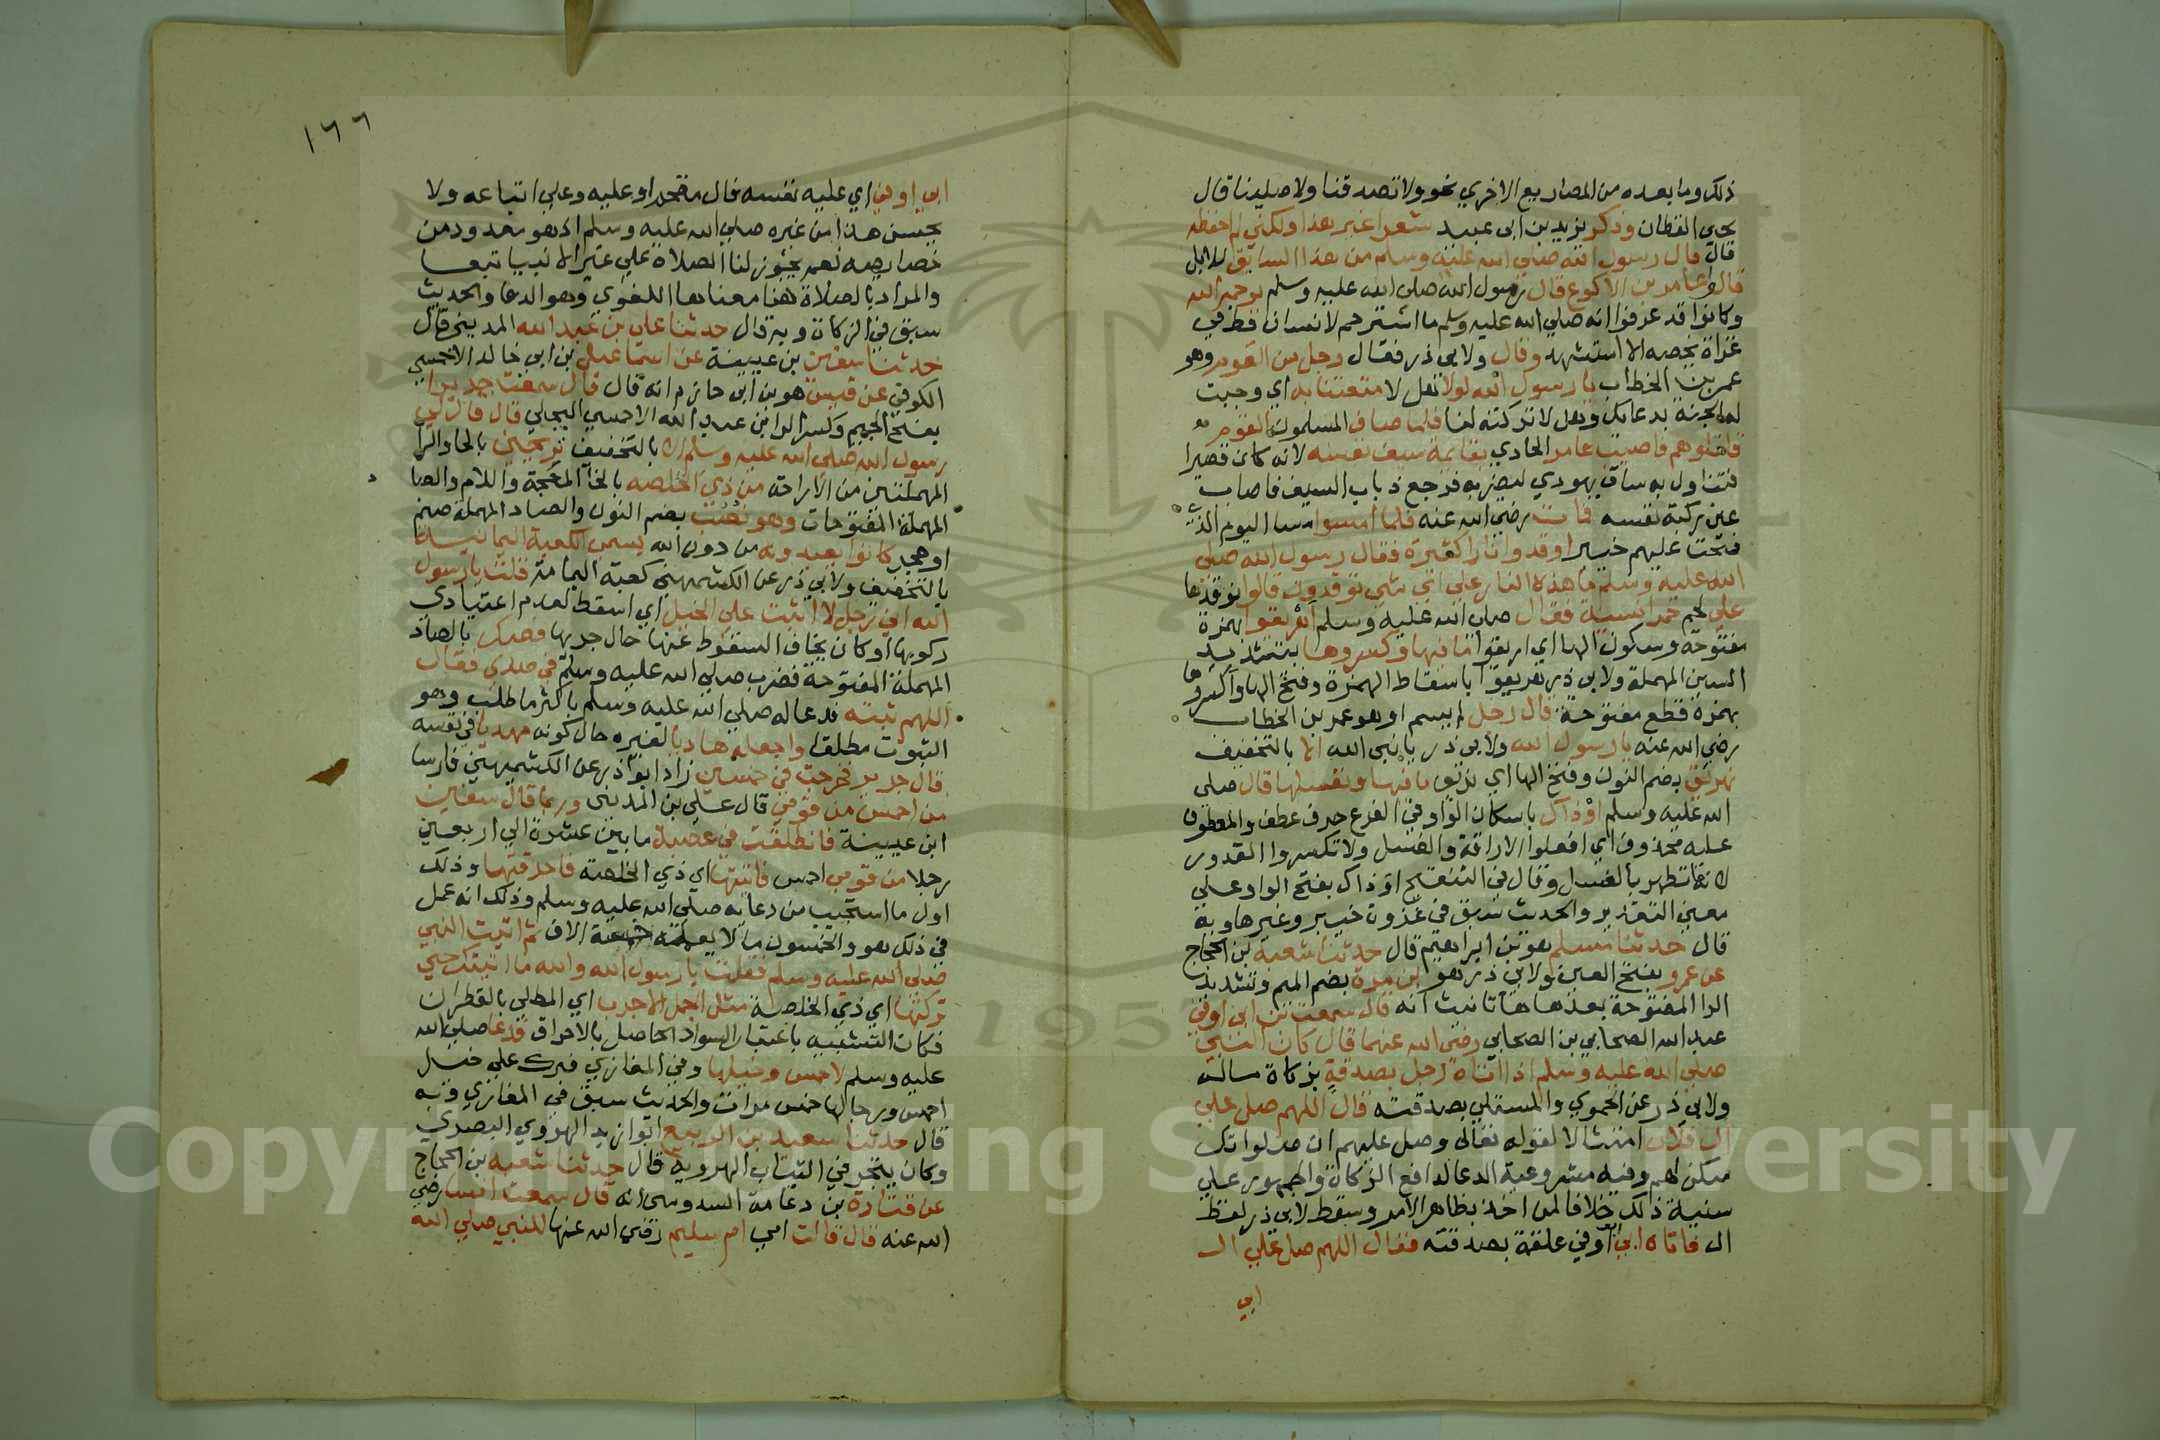 ذلك وما بعده من المصاريع الاخري نحو ولا تصدقنا ولا صلينا قال
يحيي القطان وذكر يزيد بن ابي عبيد شعرا غير هذا ولكني لم احفظه
قال قال رسول الله صلي الله عليه وسلم من هذا السايق للابل
قالوا عامر بن الاكوع قال رسول الله صلي الله عليه وسلم يرحمه الله
وكانوا قد عرفوا انه صلي الله عليه وسلم ما استرحم لانسان قط في
غزاة يخصه الا استشهد وقال ولابي ذر فقال رجل من القوم وهو
عمر بن الخطاب يا رسول الله لولا نعل لا متعتنا به اي وجبت
له الجنة بدعايك وهل لا تركته لنا فلما صاف المسلمون القوم
قاتلوهم فاصيب عامر الحادي بقايمة سيف نفسه لانه كان قصيرا
فتناول به ساق يهودي ليضربه فرجع ذباب السيف فاصاب
عين ركبة نفسه فمات رضي الله عنه فلما امسوا مسا اليوم الذي
فتحت عليهم خيبر اوقدوا نارا كثيرة فقال رسول الله صلي
الله عليه وسلم ما هذه النار علي اي شي توقدون قالوا نوقدها
علي لحم حمر انسية فقال صلي الله عليه وسلم اهريقوا بهمزة
مفتوحة وسكون الها اي اريقوا ما فيها وكسروها بتشديد
السين المهملة ولابي ذر هريقوا باسقاط الهمزة وفتح الها واكسروها
بهمزة قطع مفتوحة قال رجل لم يسم او هو عمر بن الخطاب
رضي الله عنه يا رسول الله ولابي ذر يا نبي الله الا بالتخفيف
نهريق بضم النون وفتح الها اي نريق ما فيها ونغسلها قال صلي
الله عليه وسلم او ذاك باسكان الواو في الفرع حرف عطف والمعطوف
عليه محذوف اي افعلوا الاراقة والغسل ولا تكسروا القدور
لانها تطهر بالغسل وقال في التنقيح او ذاك بفتح الواو علي
معني التقدير والحديث سبق في غزوة خيبر وغيرها وبه
قال حدثنا مسلم هو بن ابراهيم قال حدثنا شعبة بن الحجاج
عن عمرو بفتح العين ولابي ذر هو ابن مرة بضم الميم وتشديد
الرا المفتوحة بعدها ها تانيث انه قال سمعت ابن ابي اوفي
عبد الله الصحابي بن الصحابي رضي الله عنهما قال كان النبي
صلي الله عليه وسلم اذا اتاه رجل بصدقة بزكاة ماله
ولابي ذر عن الحموي والمستملي بصدقته قال اللهم صل علي
ال فلان امتثالا لقوله تعالي وصل عليهم ان صلواتك
سكن لهم وفيه مشروعية الدعا لدافع الزكاة والجمهور علي
سنية ذلك خلافا لمن اخذ بظاهر الامر وسقط لابي ذر لفظ
ال فاتاه ابي ابو اوفي علقمة بصدقته فقال اللهم صل علي ال
ابي
١٦٦
ابي اوفي اي عليه نفسه فال مقحم او عليه وعلي اتباعه ولا
يحسن هذا من غيره صلي الله عليه وسلم اذ هو معدود من
خصايصه نعم يجوز لنا الصلاة علي غير الانبيا تبعا
والمراد بالصلاة هنا معناها اللغوي وهو الدعا والحديث
سبق في الزكاة وبه قال حدثنا علي بن عبد الله المديني قال
حدثنا سفين بن عيينة عن اسماعيل بن ابي خالد الاحمسي
الكوفي عن قيس هو بن ابي حازم انه قال قال سمعت جريرا
بفتح الجيم وكسر الرا ابن عبد الله الاحمسي البجلي قال قال لي
رسول الله صلي الله عليه وسلم الا بالتخفيف تريحني بالحا والرا
المهملتين من الاراحة من ذي الخلصة بالخا المعجمة واللام والصا
المهملة المفتوحات وهو نصب بضم النون والصاد المهملة صنم
او حجر كانوا يعبدونه من دون الله يسمي الكعبة اليمانية
بالتخفيف ولابي ذر عن الكشميهني كعبة اليمامة قلت يا رسول
الله اني رجل لا اثبت علي الخيل اي اسقط لعدم اعتيادي
ركوبها او كان يخاف السقوط عنها حال جريها فصك بالصاد
المهملة المفتوحة فضرب صلي الله عليه وسلم في صدري فقال
اللهم ثبته فدعا له صلي الله عليه وسلم باكثر ما طلب وهو
الثبوت مطلقا واجعله هاديا لغيره حال كونه مهديا في نفسه
قال جرير فخرجت في خمسين زاد ابو ذر عن الكشميهني فارسا
من احمس من قومي قال علي بن المديني وربما قال سفين
ابن عيينة فانطلقت في عصبة ما بين عشرة الي اربعين
رجلا من قومي احمس فاتيتها اي ذي الخلصة فاحرقتها وذلك
اول ما استجيب من دعايه صلي الله عليه وسلم وذلك انه عمل
في ذلك هو والخمسون ما لا يعمله خمسة الاف ثم اتيت النبي
صلي الله عليه وسلم فقلت يا رسول الله والله ما اتيتك حتي
تركتها اي ذي الخلصة مثل الجمل الاجرب اي المطلي بالقطران
فكان التشبيه باعتبار السواد الحاصل بالاحراق فدعا صلي الله
عليه وسلم لاحمس وخيلها وفي المغازي فبرك علي خيل
احمس ورجالها خمس مرات والحديث سبق في المغازي وبه
قال حدثنا سعيد بن الربيع ابو زيد الهروي البصري
وكان يتجر في الثياب الهروية قال حدثنا شعبة بن الحجاج
عن قتادة بن دعامة السدوسي انه قال سمعت انسا رضي
الله عنه قال قالت امي ام سليم رضي الله عنها للنبي صلي الله
Copyright © King Saud University
195